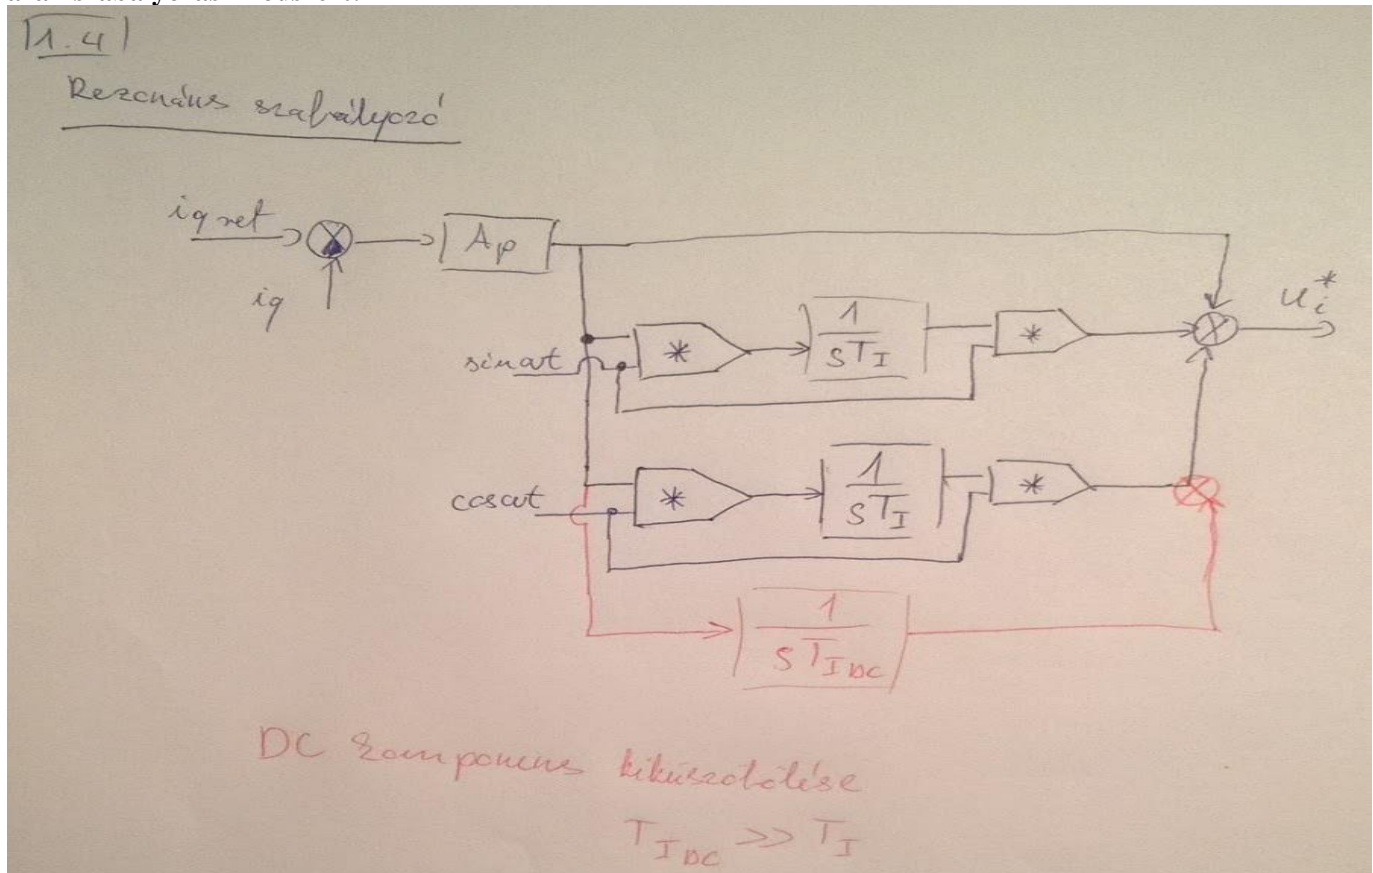 1.4
Rezonáns szabályozó
iq ref
Ap
iq
u_i*
sinωt
*
1
sT_I
*
cosωt
*
1
sT_I
*
1
sT_I DC
DC komponens kiküszöbölése
T_I DC >> T_I